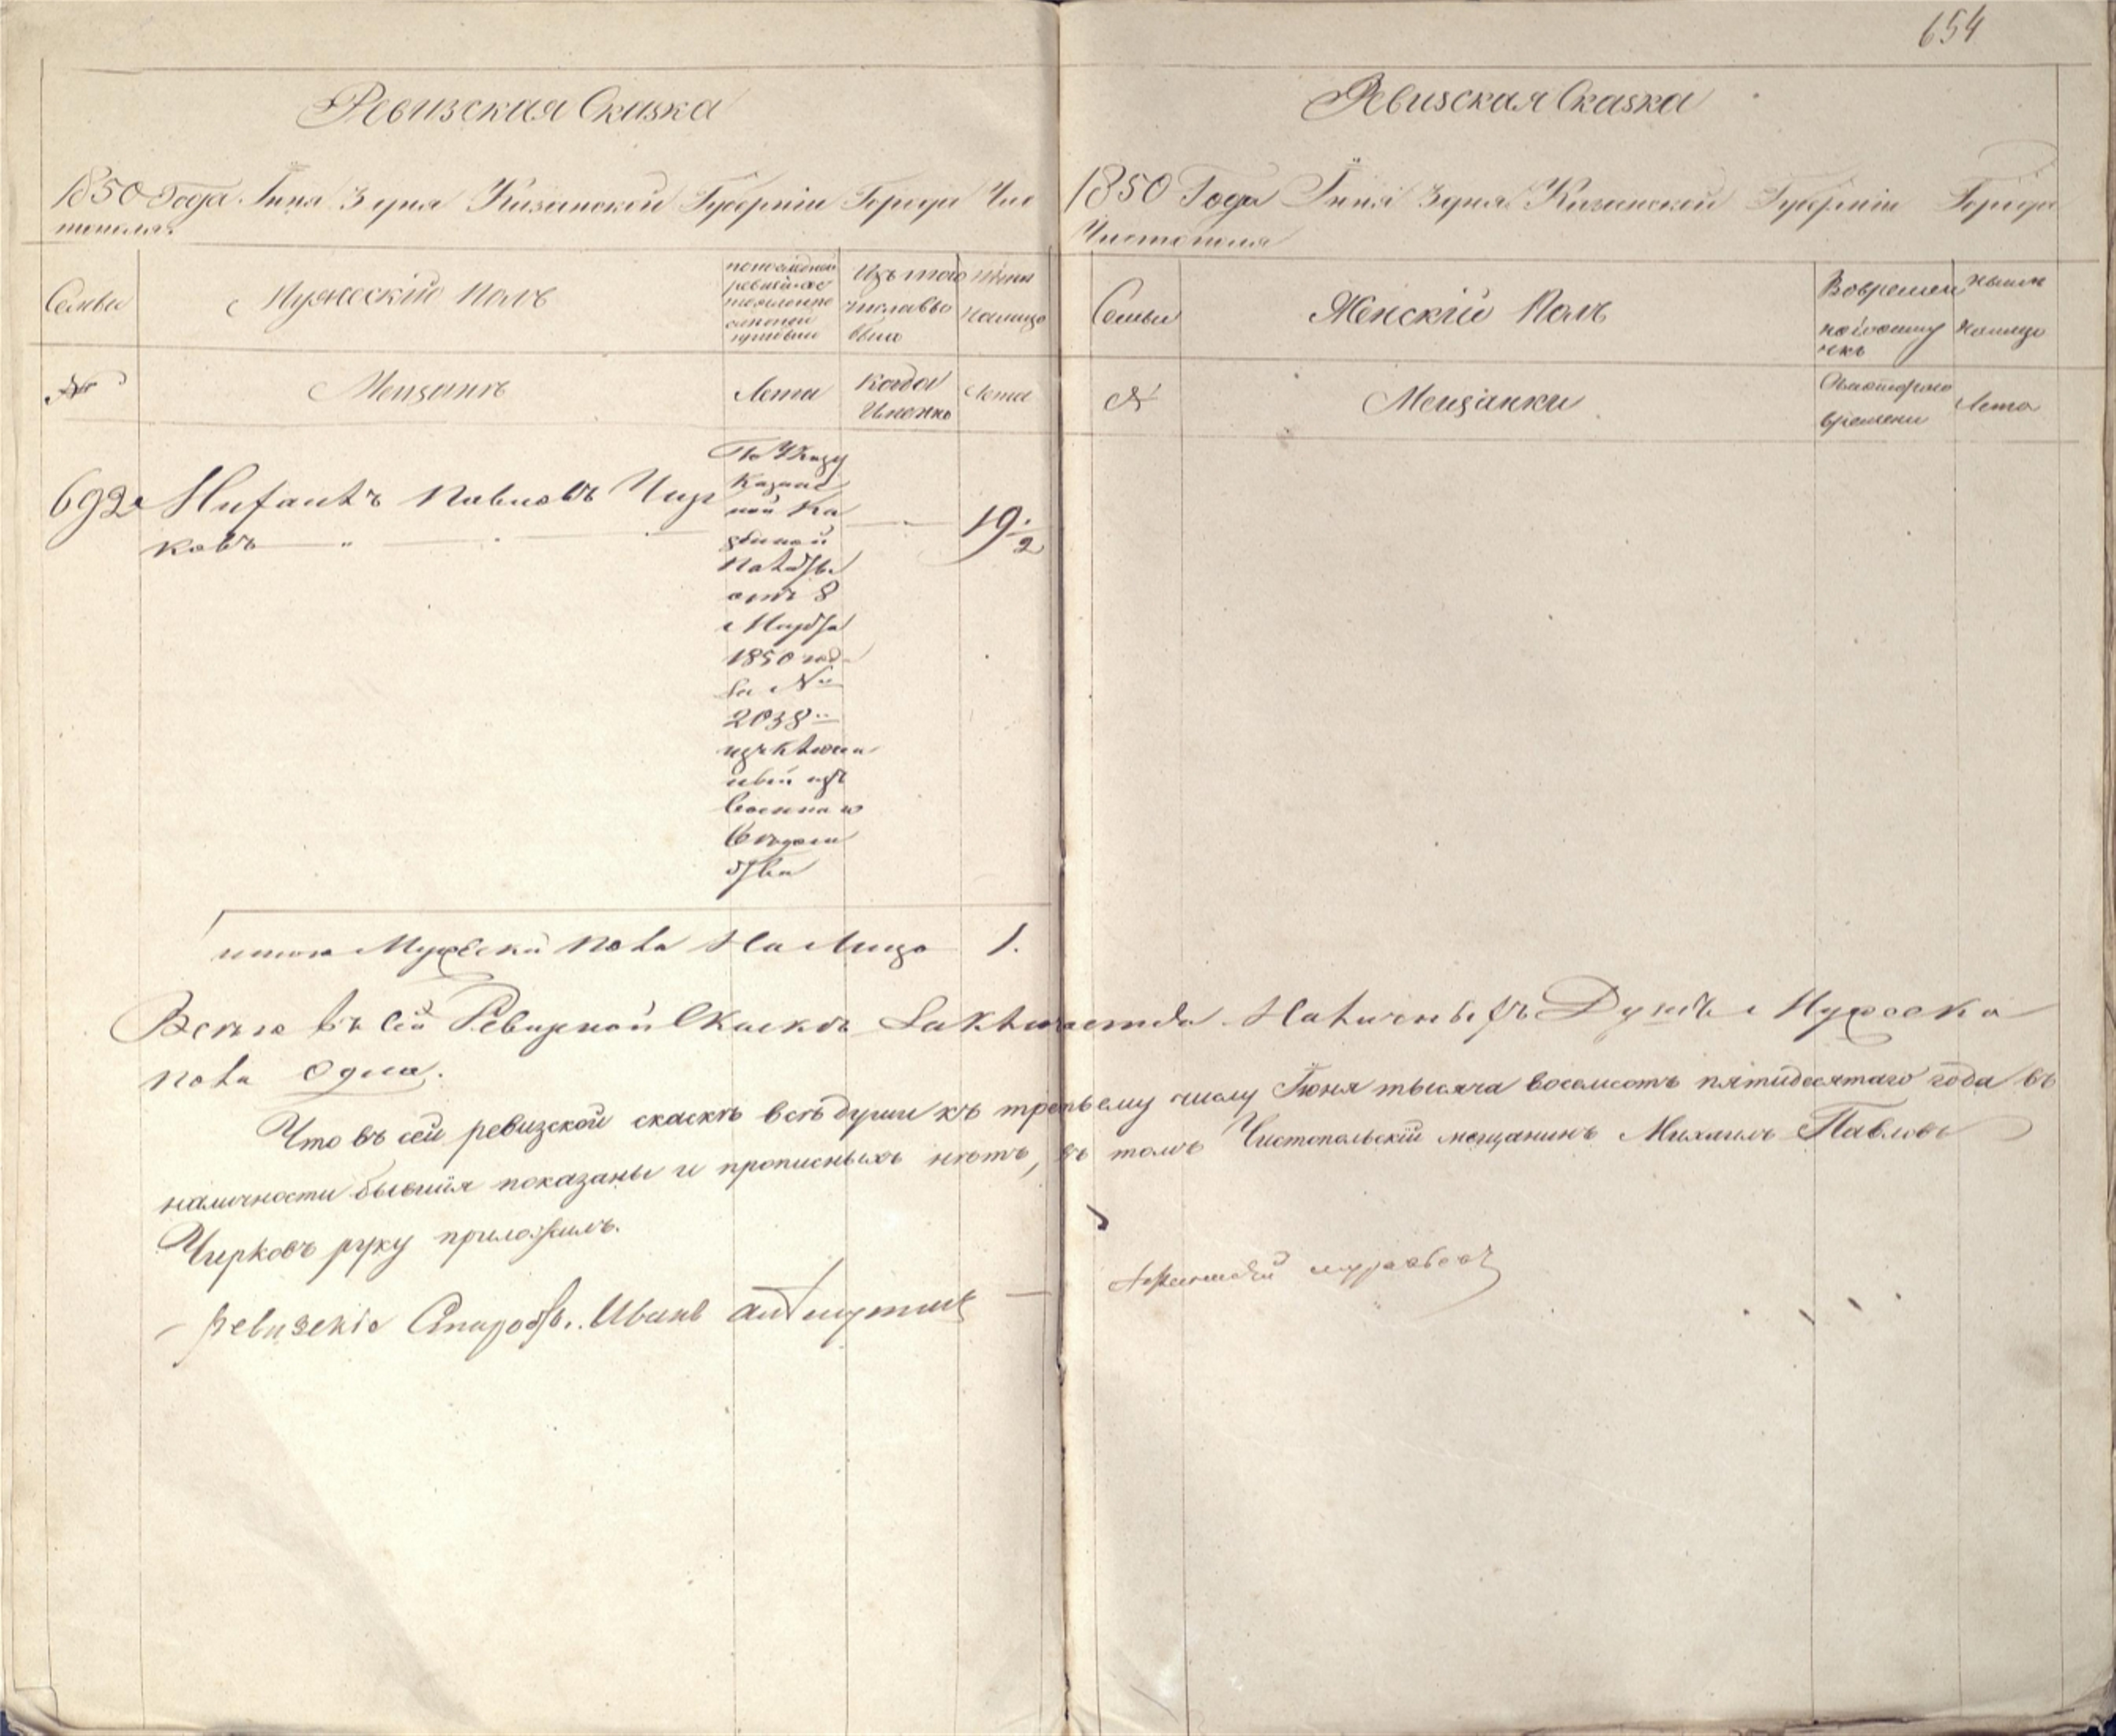 654
Ревизская Сказка
1850 Года Іюня 3 дня Казанской Губерніи Города Чис
тополя
Семьи
Мужескій Полъ
по последней
ревизіи со
стояло и
после
прибыло
Изъ того
числа вы
было
Ныне
налицо
№
Мещанъ
Лета
Когда
Именно
Лета
692
Михаилъ Павловъ Чир
ковъ
По Указу
Казанс
кой Ка
зенной
Палаты
отъ 8
Марта
1850 год
За №
2038
изключен
ный изъ
Военнаго
Ведом
ства
19 1/2
итого Мужеска пола На Лицо 1.
Ревизская Сказка
1850 Года Іюня 3 дня Казанской Губерніи Города
Чистополя
Семьи
Женскій Полъ
Во времен
ной отлу
чке
Ныне
налицо
№
Мещанки
Съ котораго
времени
Лета
Всего въ сей Ревизной Скаске Заключается Наличныхъ Душъ Мужеска
пола Одна.
Что въ сей ревизской скаске все души къ третьему числу Іюня тысяча восемсотъ пятидесятаго года въ
наличности бывшія показаны и прописныхъ нетъ, въ томъ Чистопольскій мещанинъ Михаилъ Павловъ
Чирковъ руку приложилъ.
Ревизскіе Старос. Иванъ